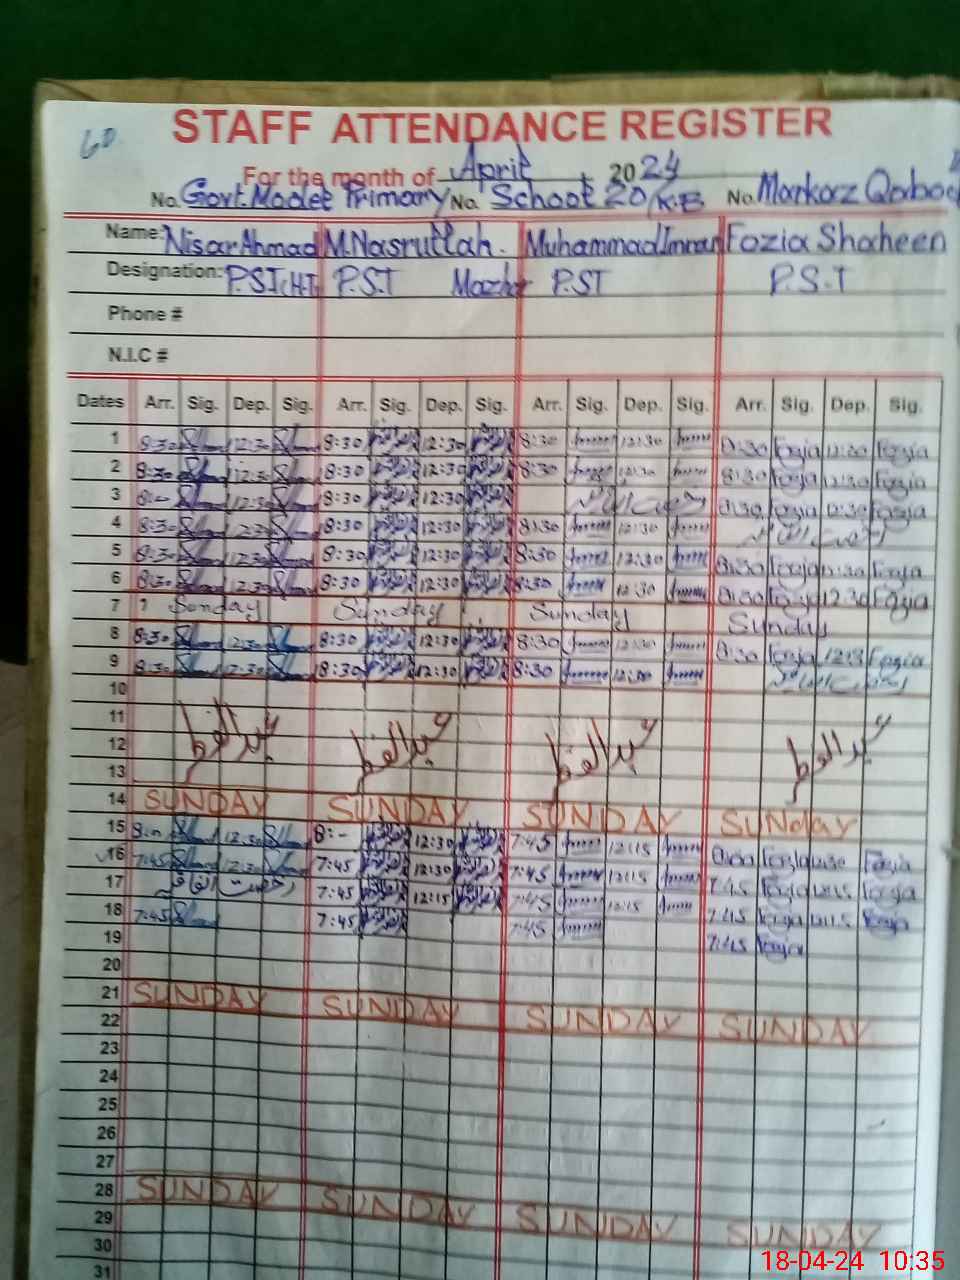 60
STAFF ATTENDANCE REGISTER
For the month of April 2024
No. Govt. Model Primary No. School 20/K.B No. Markaz Qabool
Name: Nisar Ahmad M. Nasrullah. Muhammad Imran Fozia Shaheen
Designation: P.S.T (H.T) P.S.T Mazhar P.ST P.S.T
Phone #
N.I.C #
Dates Arr. Sig. Dep. Sig. Arr. Sig. Dep. Sig. Arr. Sig. Dep. Sig. Arr. Sig. Dep. Sig.
1 8:30 12:30 8:30 12:30 8:30 12:30 8:30 Fozia 12:30 Fozia
2 8:30 12:30 8:30 12:30 8:30 12:30 8:30 Fozia 12:30 Fozia
3 8:- 12:30 8:30 12:30 رخصت اتفاقیہ 8:30 Fozia 12:30 Fozia
4 8:30 12:30 8:30 12:30 8:30 12:30 رخصت اتفاقیہ
5 8:30 12:30 8:30 12:30 8:30 12:30 8:30 Fozia 12:30 Fozia
6 8:30 12:30 8:30 12:30 8:30 12:30 8:30 Fozia 12:30 Fozia
7 Sunday Sunday Sunday Sunday
8 8:30 12:30 8:30 12:30 8:30 12:30 8:30 Fozia 12:3 Fozia
9 8:30 12:30 8:30 12:30 8:30 12:30 رخصت اتفاقیہ
10
11 عیدالفطر عیدالفطر عیدالفطر عیدالفطر
12
13
14 SUNDAY SUNDAY SUNDAY SUNday
15 8:- 12:30 8:- 12:30 7:45 12:15 8:00 Fozia 12:30 Fozia
16 7:45 12:30 7:45 12:30 7:45 12:15 7:45 Fozia 12:15 Fozia
17 رخصت اتفاقیہ 7:45 12:15 7:45 12:15 7:45 Fozia 12:15 Fozia
18 7:45 7:45 7:45 7:45 Fozia
19
20
21 SUNDAY SUNDAY SUNDAY SUNDAY
22
23
24
25
26
27
28 SUNDAY SUNDAY SUNDAY SUNDAY
29
30
31
18-04-24 10:35